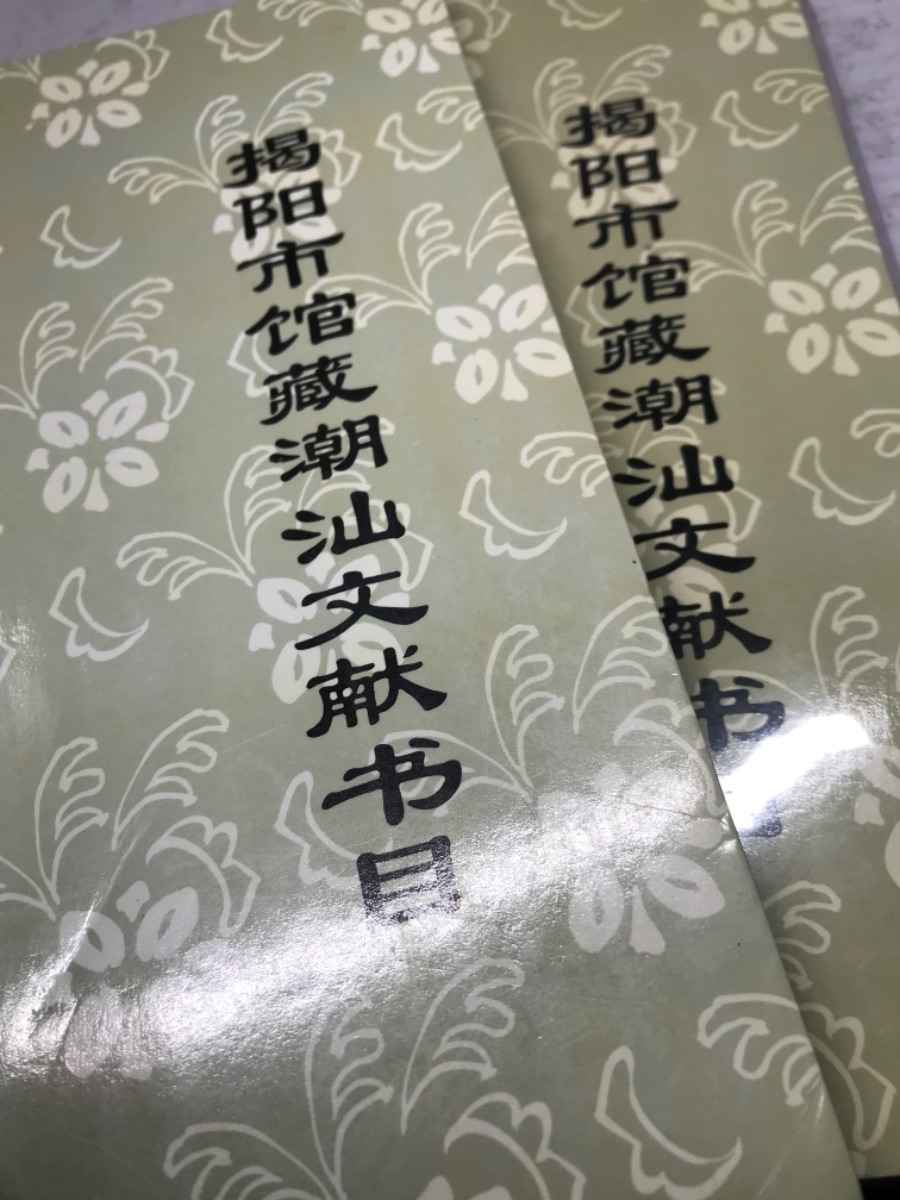 揭阳市馆藏潮汕文献书目
揭阳市馆藏潮汕文献书目